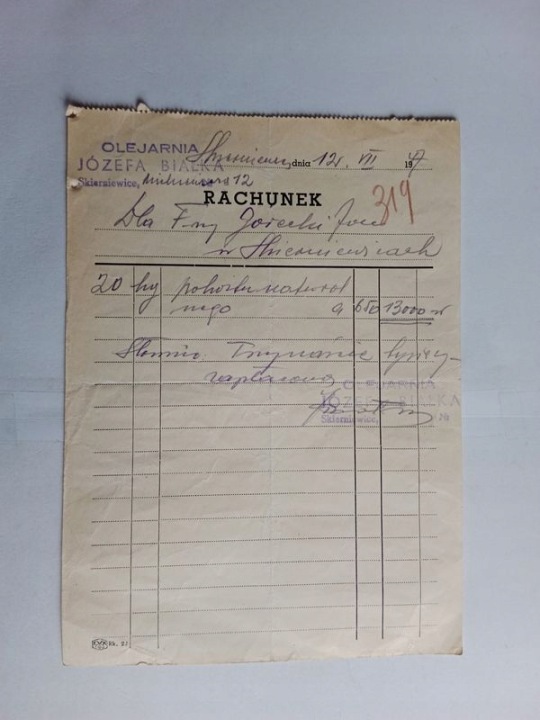 OLEJARNIA
JÓZEFA BIALKA
Skierniewice, 12
Skierniewice, dnia 12. VIII 1947
RACHUNEK
319
Dla F-my Górecki Jan
w Skierniewicach
20 kg pokostu natural
nego a 650 13000 zł
Słownie: Trzynaście tysięcy
zapłacono
OLEJARNIA
JÓZEFA BIALKA
Skierniewice, Nr